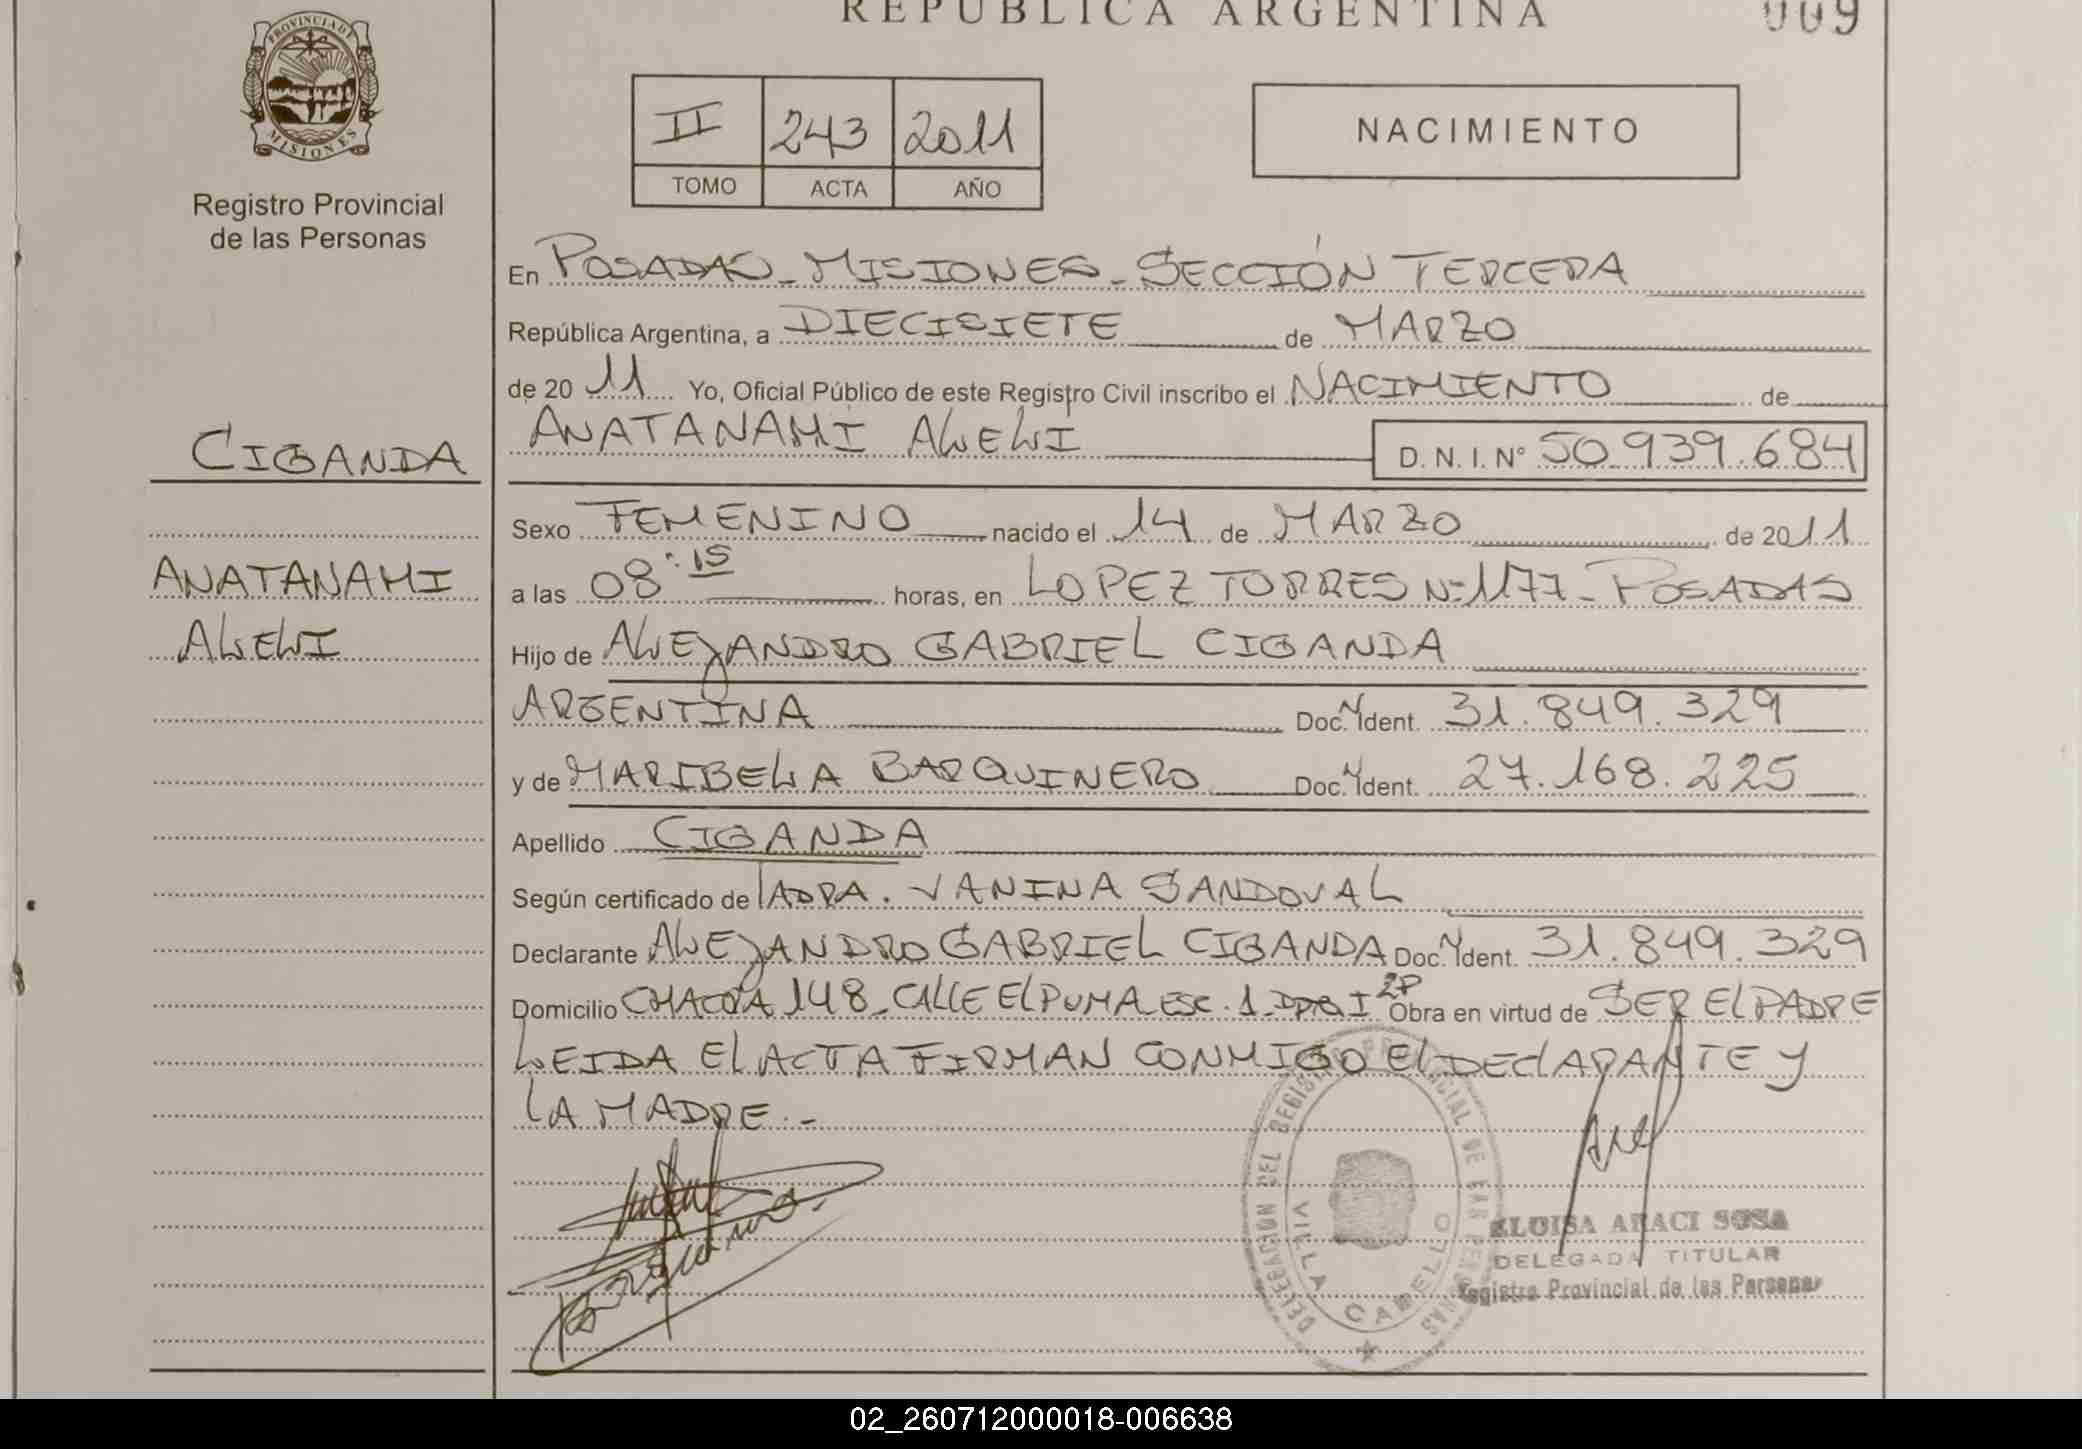 REPUBLICA ARGENTINA
009
PROVINCIA DE MISIONES
Registro Provincial
de las Personas
II 243 2011
TOMO ACTA AÑO
NACIMIENTO
En POSADAS - MISIONES - SECCIÓN TERCERA
República Argentina, a DIECISIETE de MARZO
de 2011 Yo, Oficial Público de este Registro Civil inscribo el NACIMIENTO de
ANATANAMI ALELI D. N. I. N° 50.939.684
CIGANDA
ANATANAMI
ALELI
Sexo FEMENINO nacido el 14 de MARZO de 2011
a las 08:15 horas, en LOPEZ TORRES N=1177 - POSADAS
Hijo de ALEJANDRO GABRIEL CIGANDA
ARGENTINA Doc. N Ident. 31.849.329
y de MARIBELA BARQUINERO Doc. N Ident. 27.168.225
Apellido CIGANDA
Según certificado de VANINA SANDOVAL
Declarante ALEJANDRO GABRIEL CIGANDA Doc. N Ident. 31.849.329
Domicilio CHACRA 148 - CALLE EL PUMA ESC. 1 - 2P Obra en virtud de SER EL PADRE
LEIDA EL ACTA FIRMAN CONMIGO EL DECLARANTE Y
LA MADRE.-
DELEGACION DEL REGISTRO PROVINCIAL DE LAS PERSONAS
VILLA CABELLO
ELOISA ARACI SOSA
DELEGADA TITULAR
Registro Provincial de las Personas
02_260712000018-006638